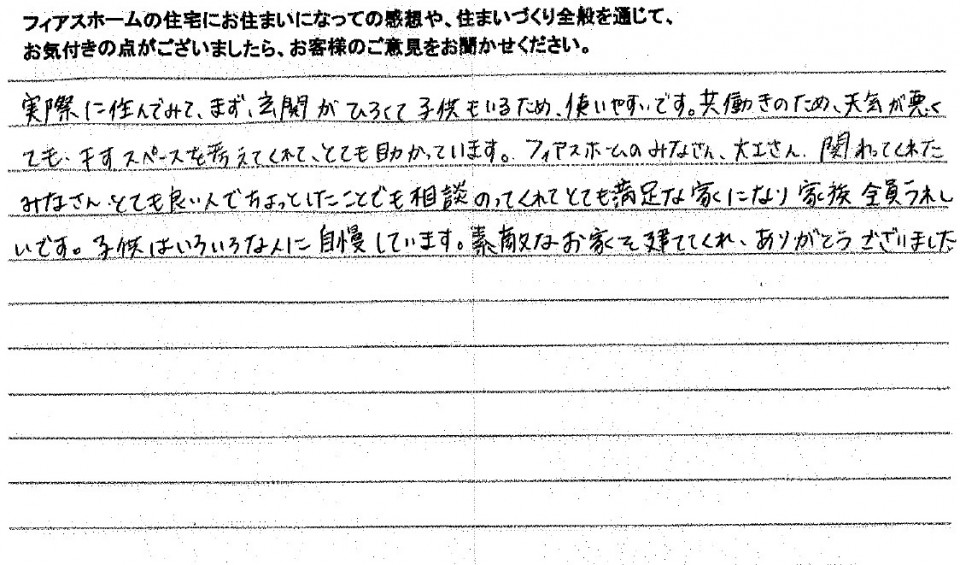 フィアスホームの住宅にお住まいになっての感想や、住まいづくり全般を通じて、
お気付きの点がございましたら、お客様のご意見をお聞かせください。
実際に住んでみて、まず、玄関がひろくて子供もいるため、使いやすいです。共働きのため、天気が悪く
ても、干すスペースを考えてくれて、とても助かっています。フィアスホームのみなさん、大工さん、関わってくれた
みなさんとても良い人でちょっとしたことでも相談のってくれてとても満足な家になり家族全員うれし
いです。子供はいろいろな人に自慢しています。素敵なお家を建ててくれ、ありがとうございました